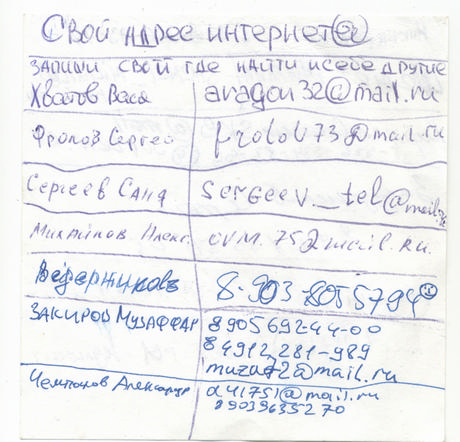 Свой адрес интернете
запиши свой где найти и себе другие
Хватов Вася aragon32@mail.ru
Фролов Сергей frolov73@mail.ru
Сергеев Саня sergeev_tel@mail.ru
Михайлов Алекс. ovm.75@mail.ru.
Ведерников 8-903-8055794
ЗАКИРОВ МУЗАФФАР 8905692-44-00
84912,281-989
muzaz2@mail.ru
Александр d41751@mail.ru
89039635270